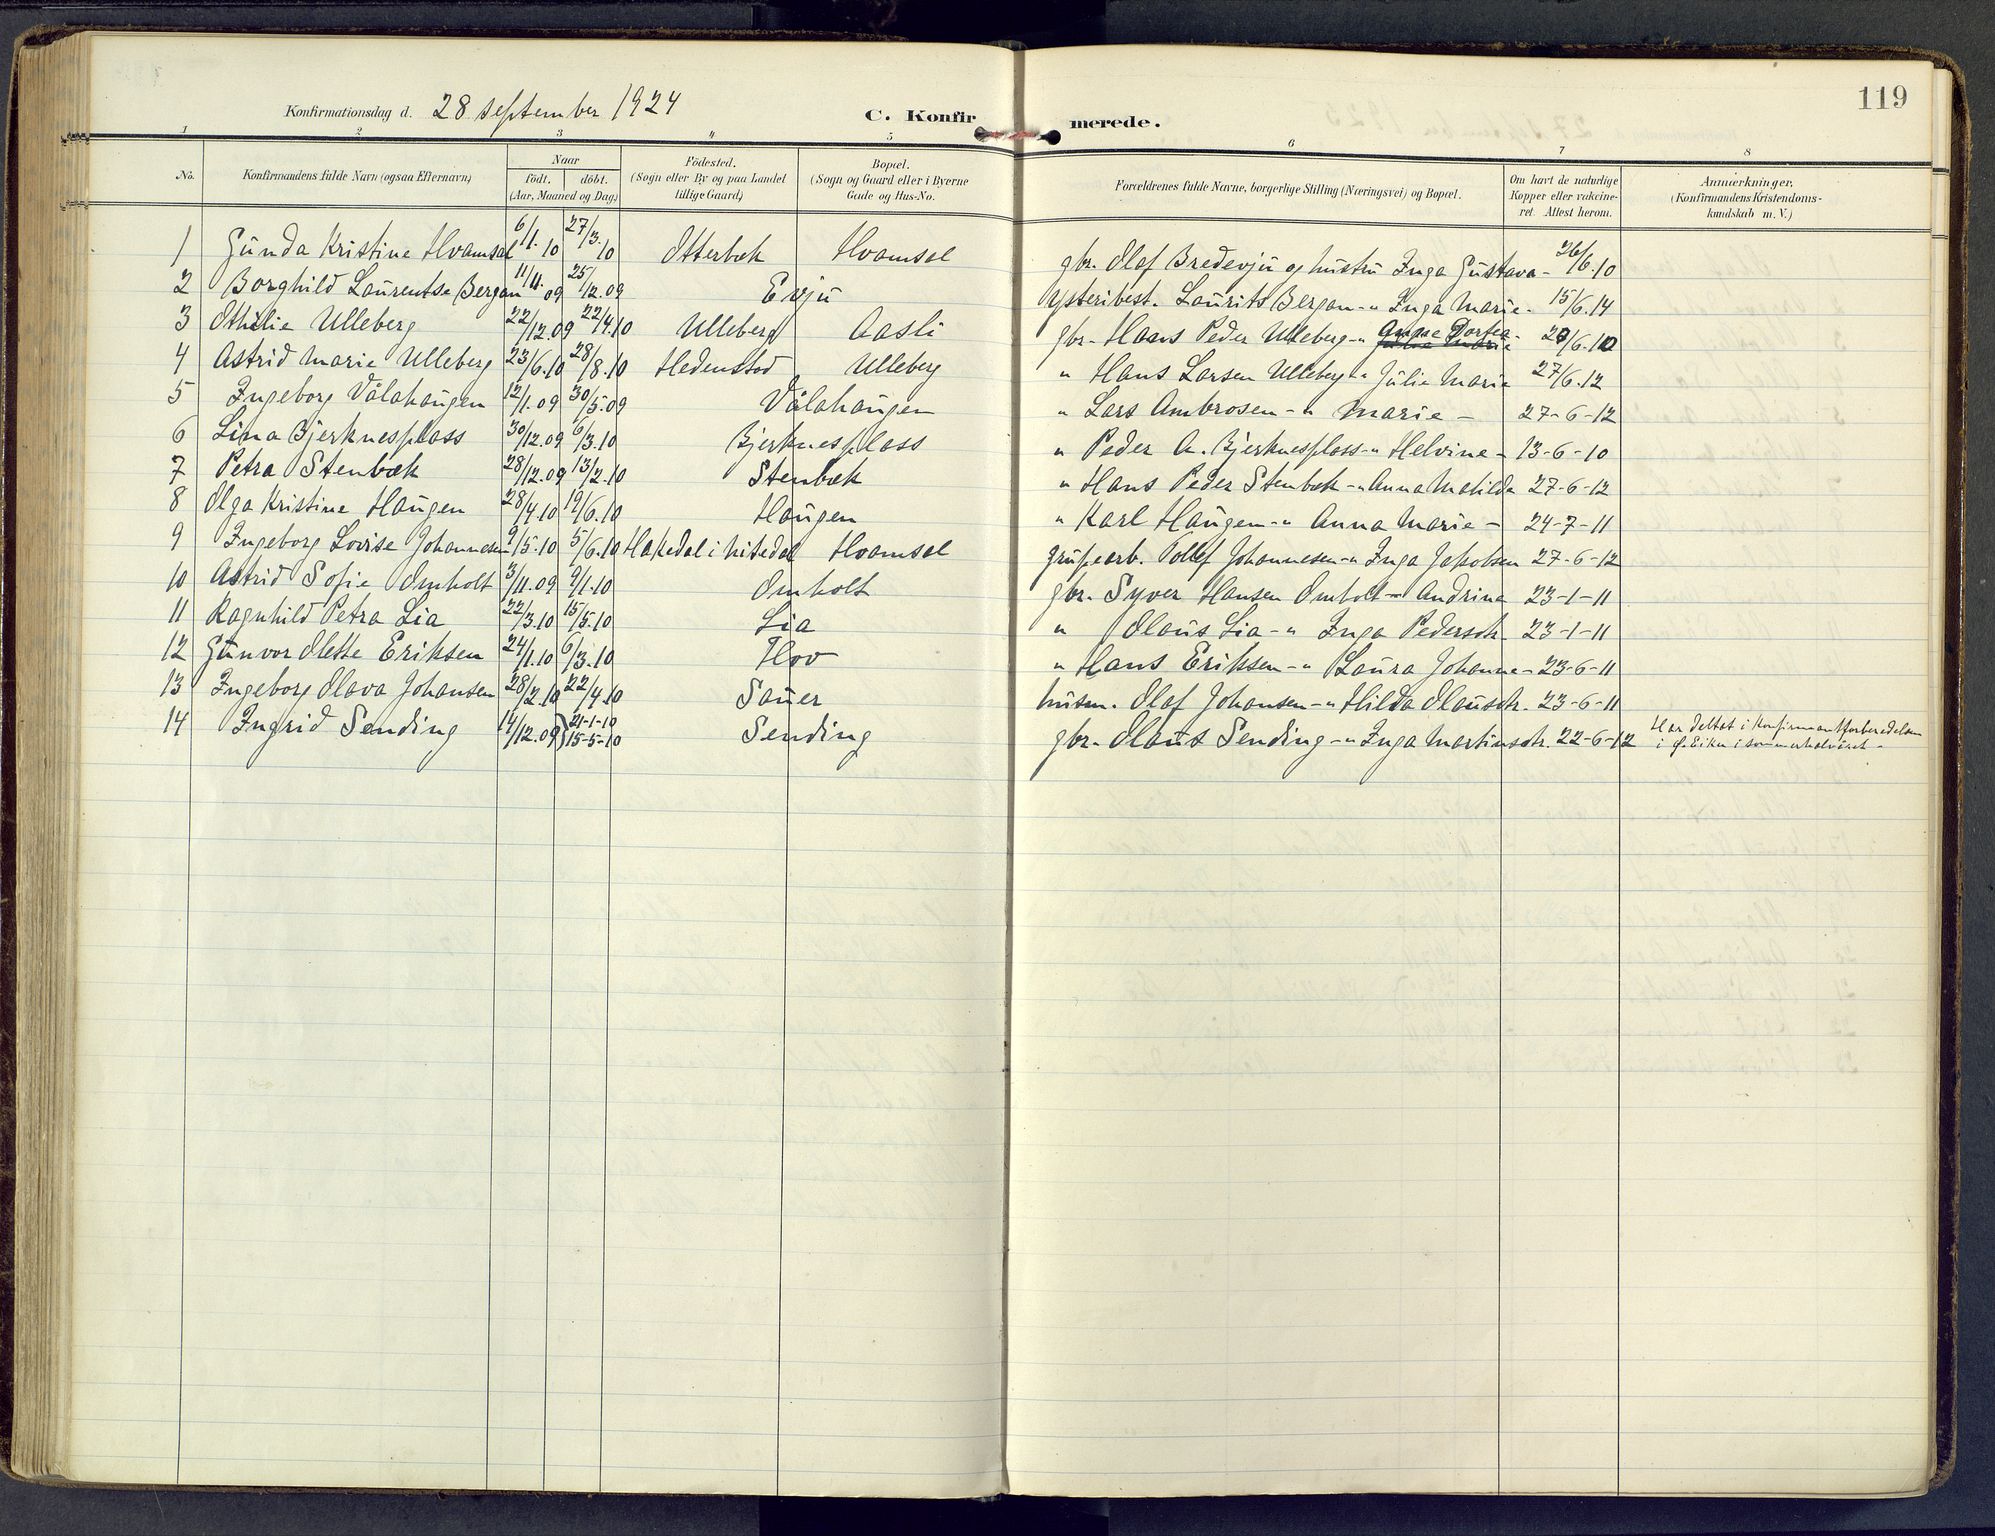 119
Konfirmationsdag d. 28 september 1924 C. Konfirmerede.
1 2 3 4 5 6 7 8
No. Konfirmandens fulde Navn (ogsaa Efternavn) Naar födt. döbt. (Aar, Maaned og Dag.) Födested. (Sogn eller By og paa Landet tillige Gaard) Bopæl. (Sogn og Gaard eller i Byerne Gade og Hus-No. Forældrenes fulde Navne, borgerlige Stilling (Næringsvei) og Bopæl. Om havt de naturlige Kopper eller vakcineret. Attest herom. Anmærkninger. (Konfirmandens Kristendomskundskab m. V.)
1 Gunda Kristine Hvamsal 6/1.10 27/3.10 Otterbæk Hvamsal gbr. Olaf Bredevju og hustru Inga Gustava - 26/6.10
2 Borghild Laurentse Bergan 11/11.09 25/12.09 Evju ysteribest. Laurits Bergan -"- Inga Marie - 15/6.14
3 Othilie Ulleberg 22/12.09 22/4.10 Ulleberg Aasli gbr. Hans Peder Ulleberg -"- Anne Dortea - 27/6.10
4 Astrid Marie Ulleberg 23/6.10 28/8.10 Hedenstad Ulleberg " Hans Larsen Ulleberg " Julie Marie 27/6.12
5 Ingeborg Vålahaugen 12/1.09 30/5.09 Vålahaugen " Lars Ambrosen -"- Marie - 27-6-12
6 Lina Bjerknesplass 30/12.09 6/3.10 Bjerknesplass " Peder A. Bjerknesplass -"- Helvine - 13-6-10
7 Petra Stenbæk 28/12.09 13/2.10 Stenbæk " Hans Peder Stenbæk -"- Anna Matilda 27-6-12
8 Olga Kristine Haugen 28/4.10 19/6.10 Haugen " Karl Haugen -"- Anna Marie - 24-7-11
9 Ingeborg Lovise Johannesen 9/5.10 5/6.10 Hakedal i Nitedal Hvamsal grubearb. Tollef Johannesen -"- Inga Jakobsen 27-6-12
10 Astrid Sofie Omholt 3/11.09 9/1.10 Omholt gbr. Syver Hansen Omholt - Andrina 23-1-11
11 Ragnhild Petra Lia 22/3.10 15/5.10 Lia " Olaus Lia -"- Inga Pedersdtr. 23-1-11
12 Gunvor Mette Eriksen 24/1.10 6/3.10 Hov " Hans Eriksen -"- Laura Johanne - 23-6-11
13 Ingeborg Olava Johansen 28/2.10 22/4.10 Sauer husm. Olaf Johansen -"- Hilda Olausdtr. 23-6-11
14 Ingrid Sending 14/12.09 21-1-10 15-5-10 Sending gbr. Olaus Sending -"- Inga Martinsdtr. 22-6-12 Har deltat i konfirmantforberedelsen
i Ø. Eiker i sommerhalvåret -